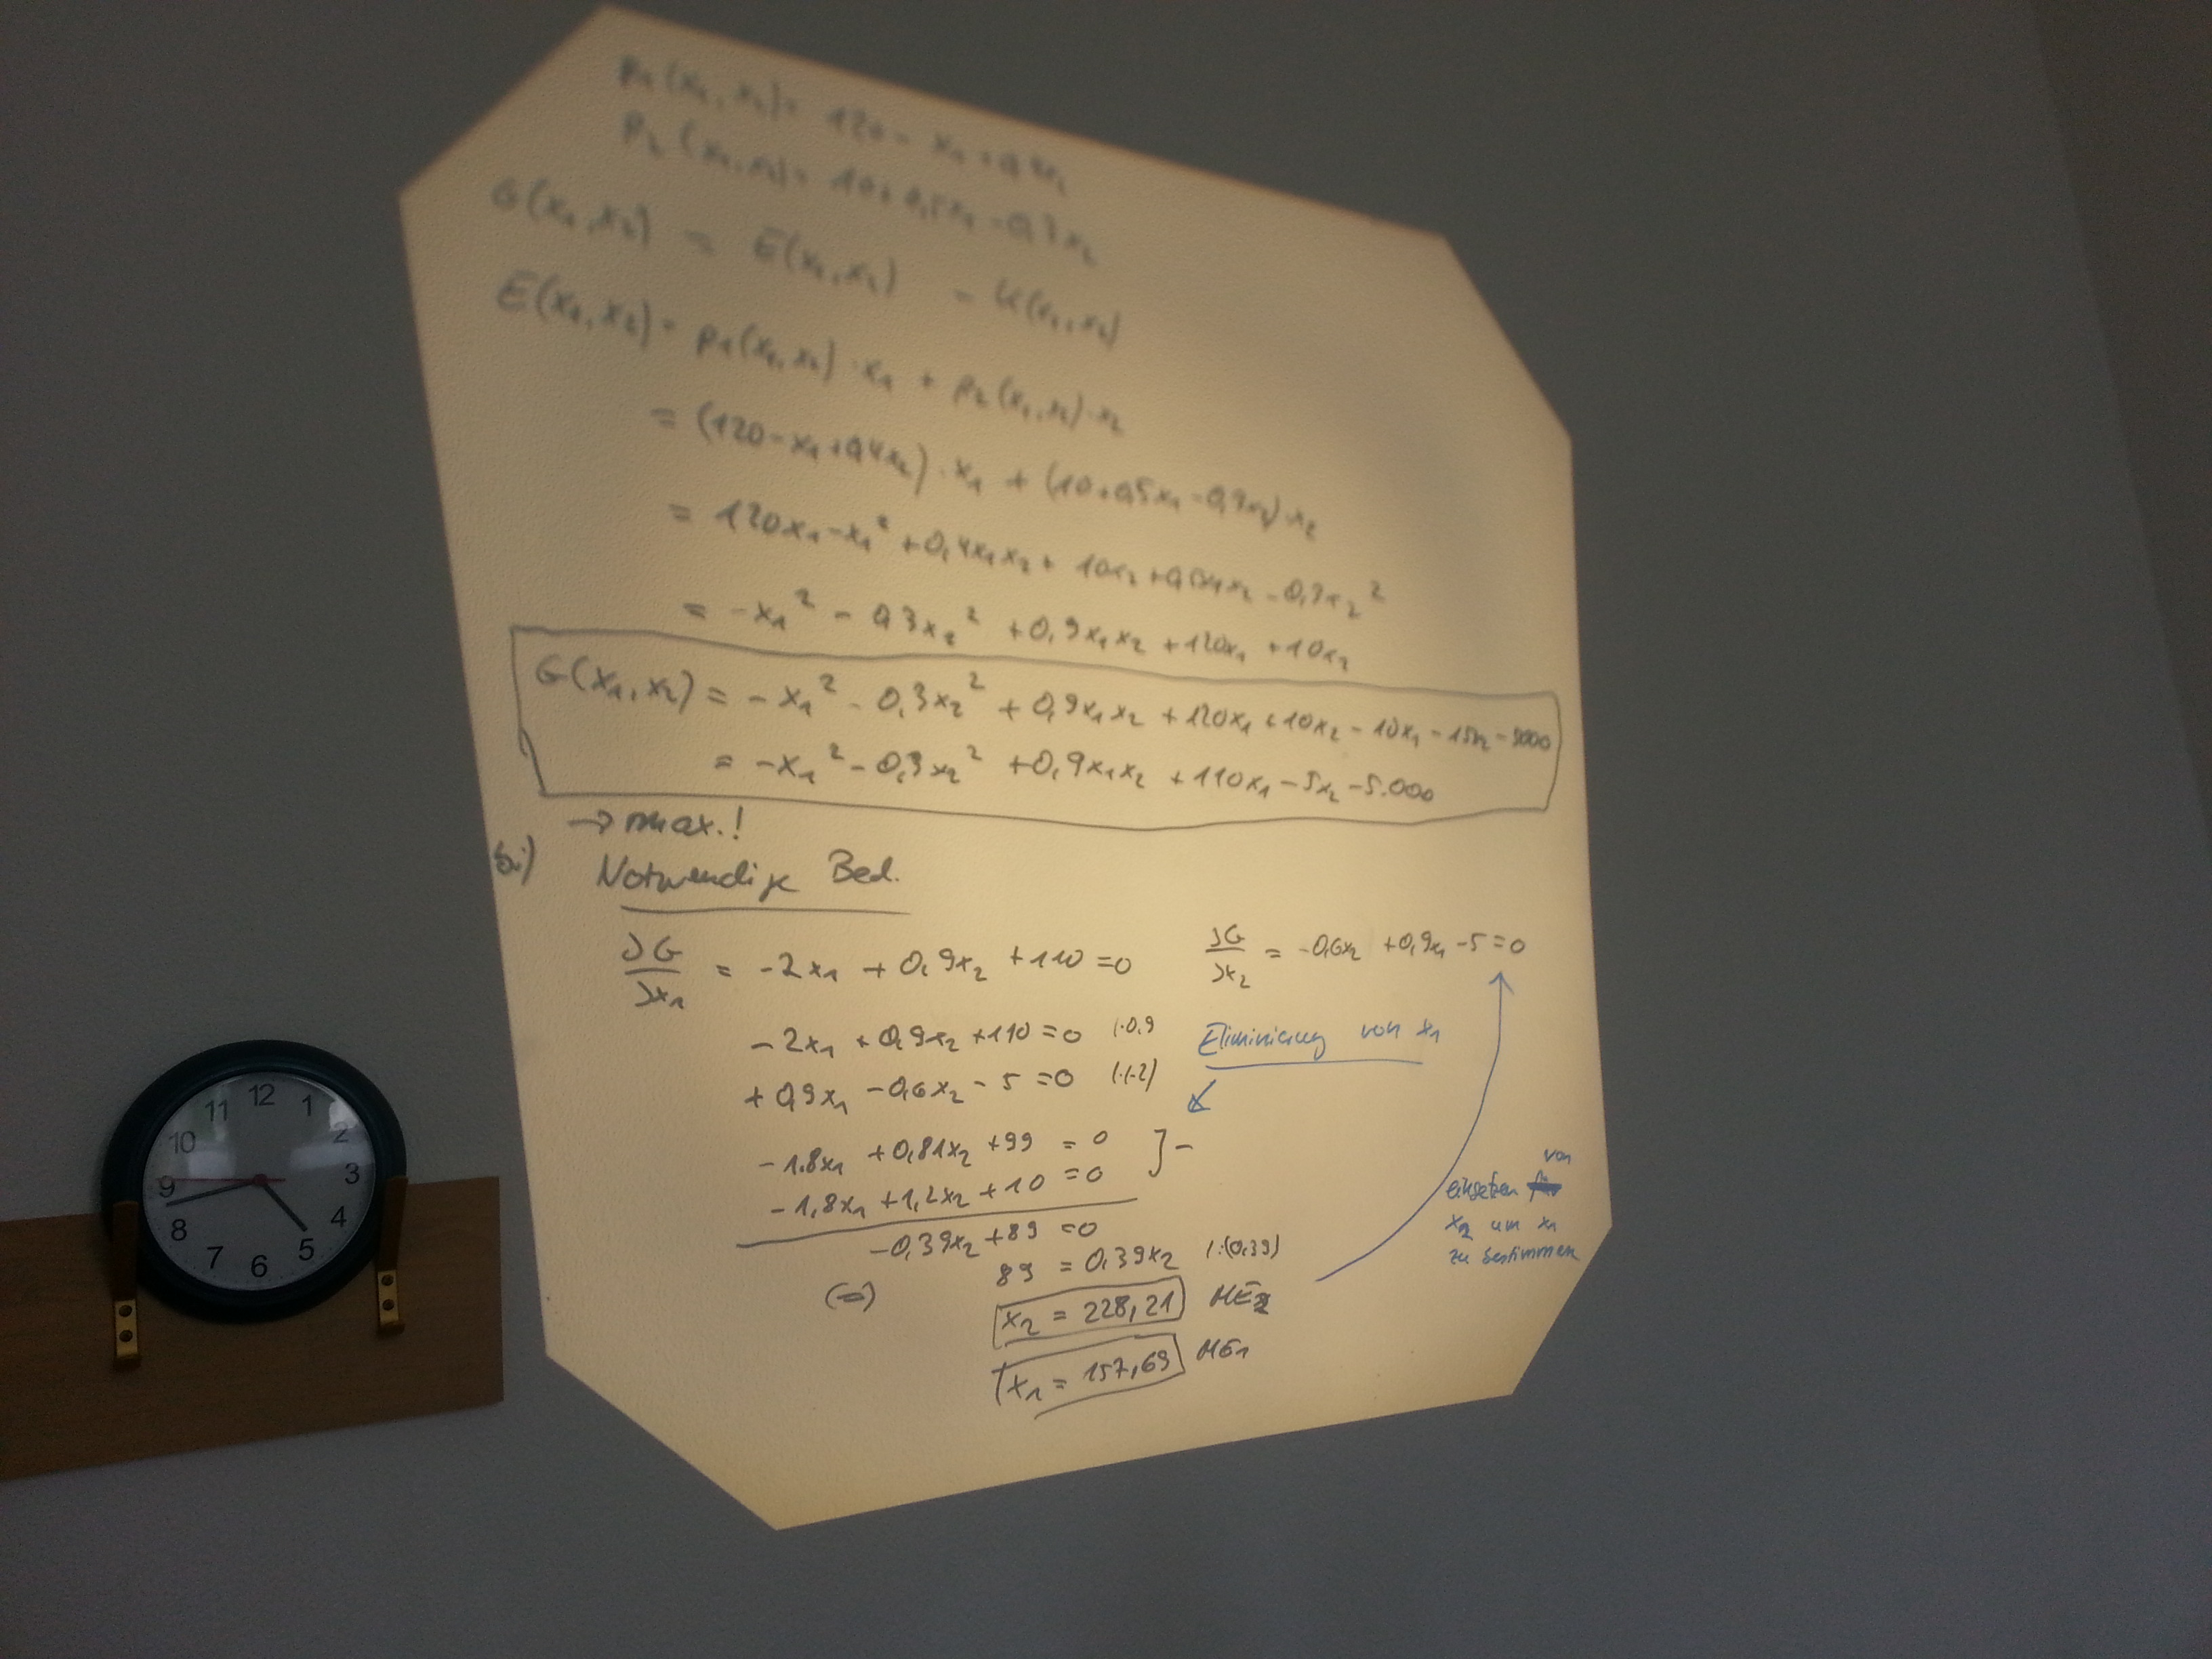 p₁(x₁,x₂) = 120 - x₁ + 0,4x₂
p₂(x₁,x₂) = 10 + 0,5x₁ - 0,3x₂
G(x₁,x₂) = E(x₁,x₂) - K(x₁,x₂)
E(x₁,x₂) = p₁(x₁,x₂)·x₁ + p₂(x₁,x₂)·x₂
= (120 - x₁ + 0,4x₂)·x₁ + (10 + 0,5x₁ - 0,3x₂)·x₂
= 120x₁ - x₁² + 0,4x₁x₂ + 10x₂ + 0,5x₁x₂ - 0,3x₂²
= -x₁² - 0,3x₂² + 0,9x₁x₂ + 120x₁ + 10x₂
G(x₁,x₂) = -x₁² - 0,3x₂² + 0,9x₁x₂ + 120x₁ + 10x₂ - 10x₁ - 15x₂ - 5000
= -x₁² - 0,3x₂² + 0,9x₁x₂ + 110x₁ - 5x₂ - 5.000
→ max.!
bi) Notwendige Bed.
∂G/∂x₁ = -2x₁ + 0,9x₂ + 110 = 0 ∂G/∂x₂ = -0,6x₂ + 0,9x₁ - 5 = 0
-2x₁ + 0,9x₂ + 110 = 0 |·0,9 Eliminierung von x₁
+ 0,9x₁ - 0,6x₂ - 5 = 0 |·(-2)
-1.8x₁ + 0,81x₂ + 99 = 0 } -
-1,8x₁ + 1,2x₂ + 10 = 0
-0,39x₂ + 89 = 0
89 = 0,39x₂ |:(0,39)
(=) x₂ = 228,21 ME₂
x₁ = 157,69 ME₁
von
einsetzen
x₂ um x₁
zu bestimmen
12
1
2
3
4
5
6
7
8
9
10
11